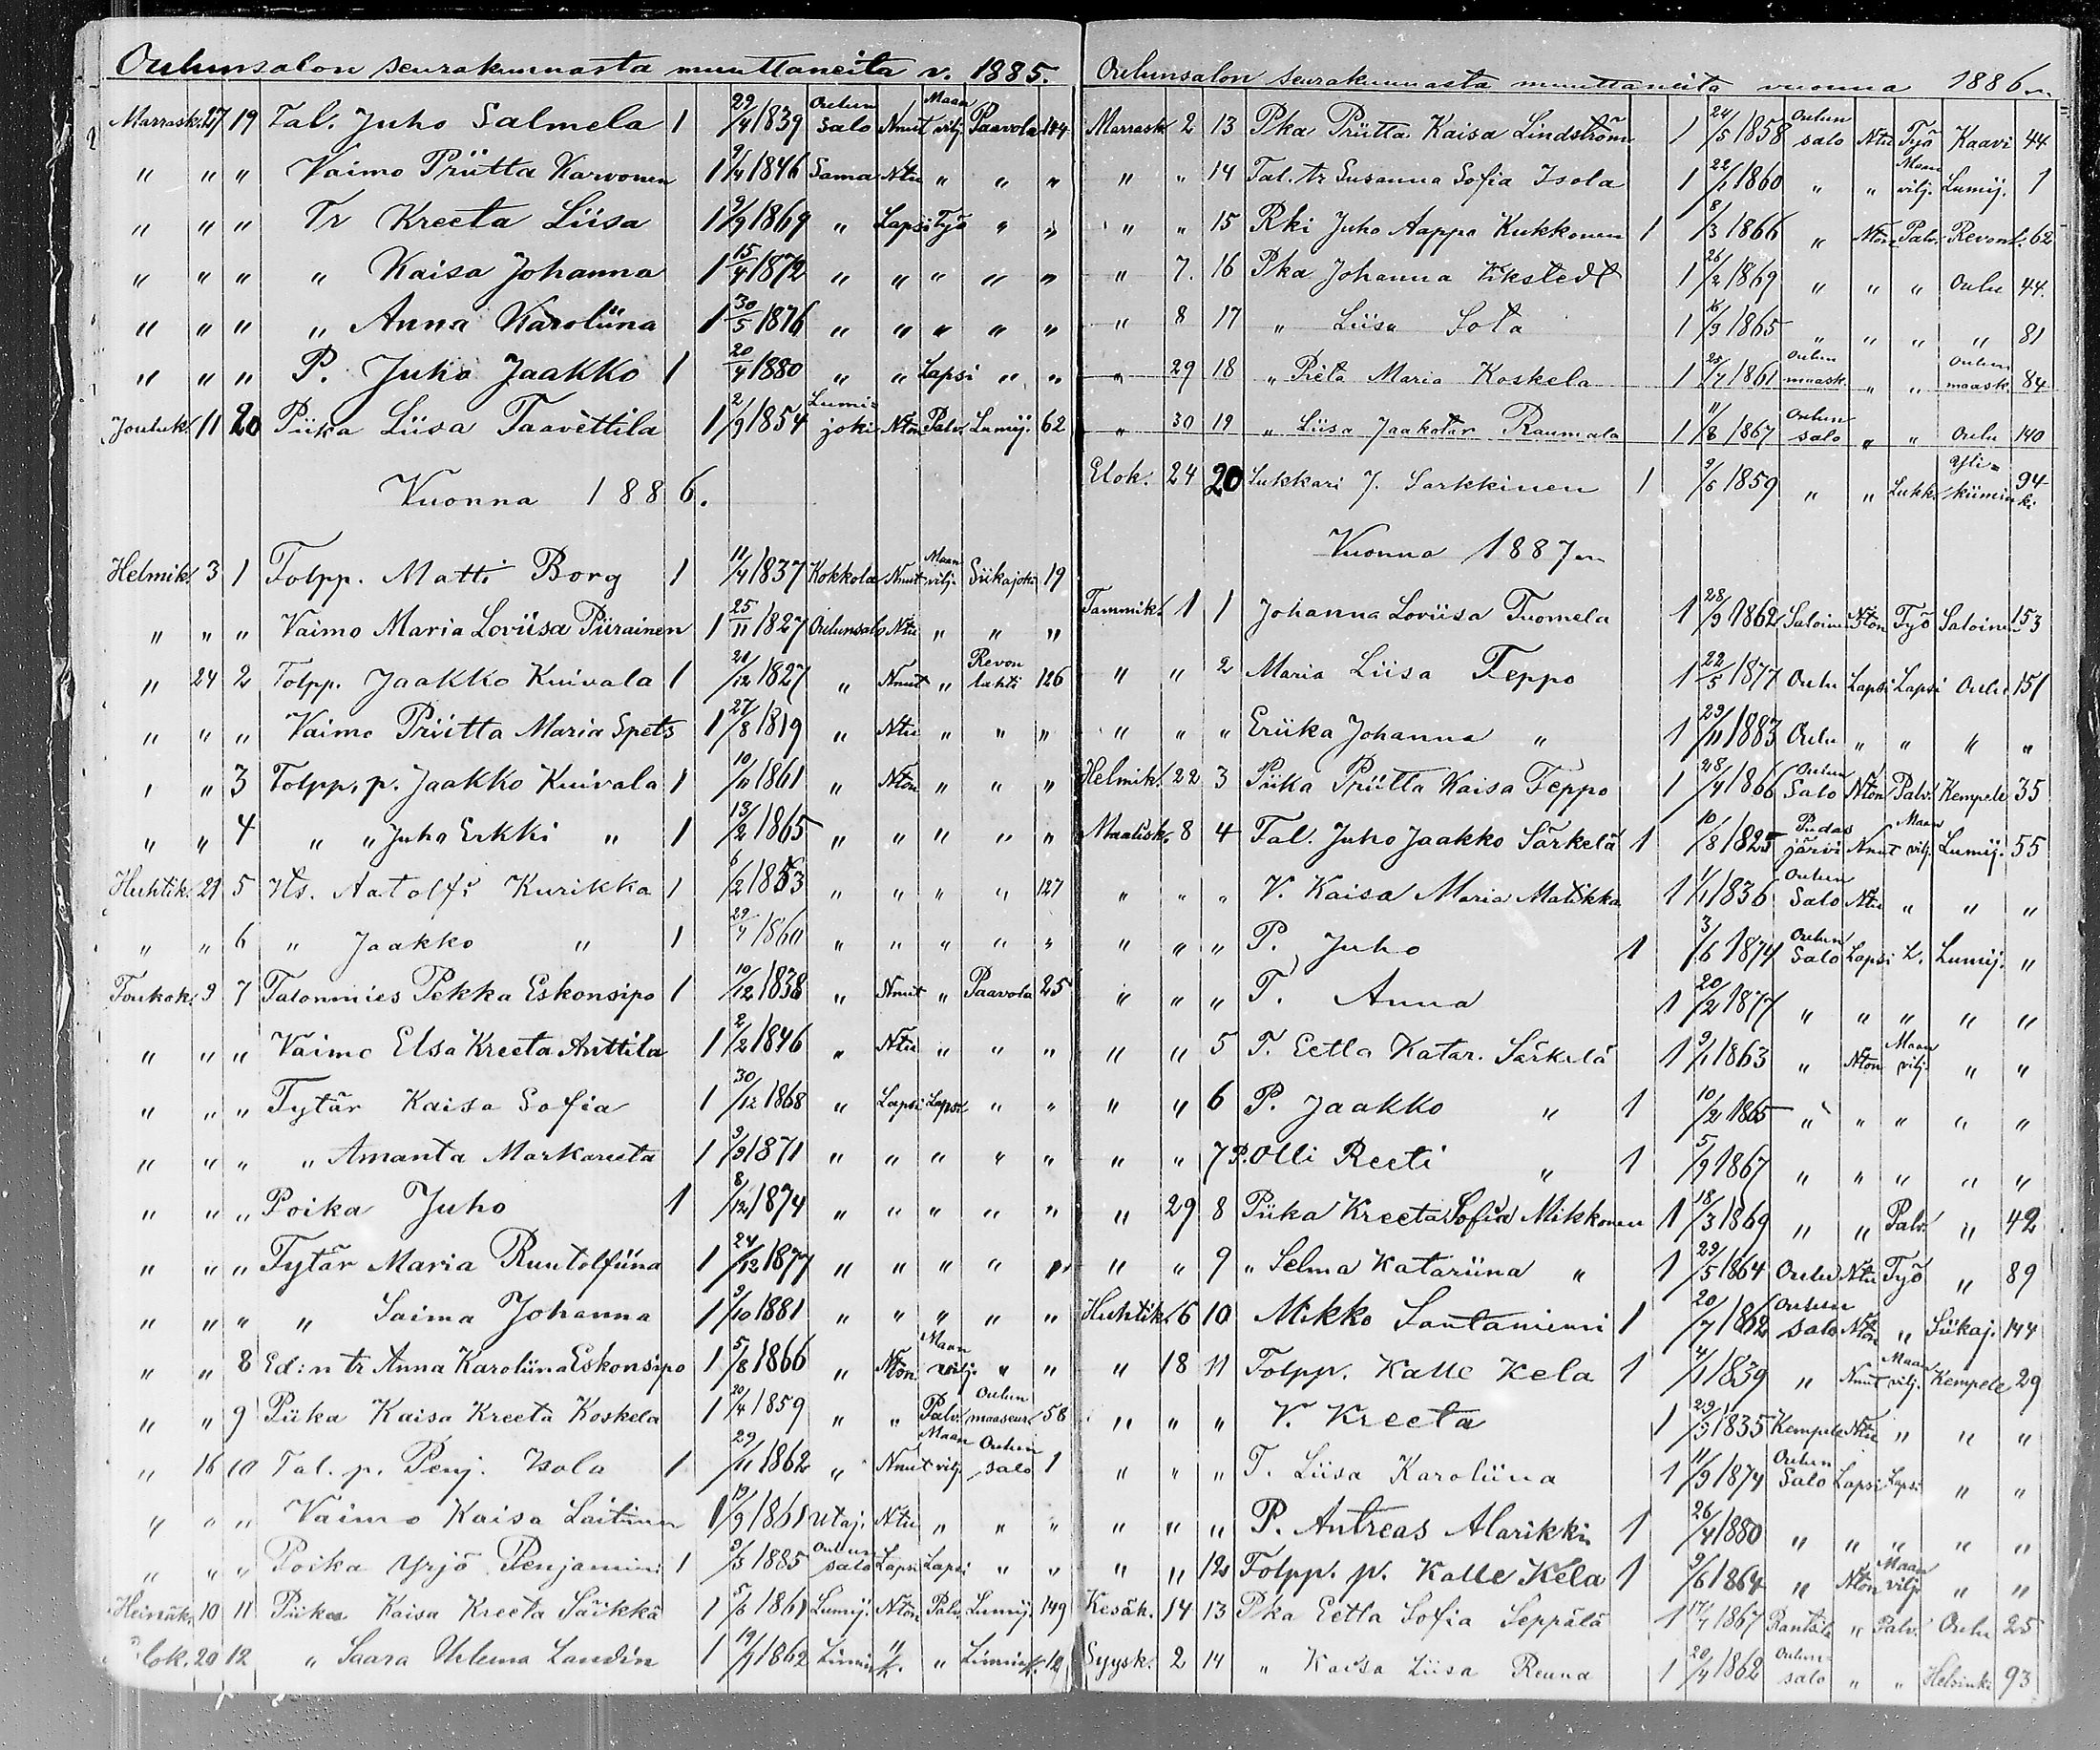 Oulunsalon seurakunnasta muuttaneita v. 1885.
Marrask. 27 19 Tal. Juho Salmela 1 29/4 1839 Oulun salo Nmut Maan vilj. Paavola 104
" " " Vaimo Priitta Karvonen 1 9/4 1846 Sama Ntu " " "
" " " Tr Kreeta Liisa 1 9/9 1869 " Lapsi Työ " "
" " " " Kaisa Johanna 1 15/4 1872 " " " " "
" " " " Anna Karoliina 1 30/5 1876 " " " " "
" " " P. Juho Jaakko 1 20/4 1880 " " Lapsi " "
Jouluk. 11 20 Piika Liisa Taavettila 1 2/9 1854 Lumi= joki Ntön Palv. Lumij. 62
Vuonna 1886.
Helmik. 3 1 Tolpp. Matti Borg 1 11/4 1837 Kokkola Nmut Maan vilj. Siikajoki 19
" " " Vaimo Maria Loviisa Piirainen 1 25/11 1827 Oulunsalo Ntu " " "
" 24 2 Tolpp. Jaakko Kuivala 1 21/12 1827 " Nmut " Revon lahti 126
" " " Vaimo Priitta Maria Spets 1 27/8 1819 " Ntu " " "
" " 3 Tolpp. p. Jaakko Kuivala 1 10/11 1861 " Ntön " " "
" " 4 " " Juho Erkki " 1 13/2 1865 " " " " "
Huhtik. 21 5 Its. Aatolfi Kurikka 1 6/2 1853 " " " " 127
" " 6 " Jaakko " 1 29/7 1860 " " " " "
Toukok. 9 7 Talonmies Pekka Eskonsipo 1 10/12 1838 " Nmut " Paavola 25
" " " Vaimo Elsa Kreeta Anttila 1 2/2 1846 " Ntu " " "
" " " Tytär Kaisa Sofia 1 30/12 1868 " Lapsi Lapsi " "
" " " " Amanta Markareeta 1 9/9 1871 " " " " "
" " " Poika Juho 1 8/12 1874 " " " " "
" " " Tytär Maria Ruutolfiina 1 24/12 1877 " " " " "
" " " " Saima Johanna 1 9/10 1881 " " " " "
" " 8 Ed:n tr Anna Karoliina Eskonsipo 1 5/8 1866 " Ntön Maan vilj. " "
" " 9 Piika Kaisa Kreeta Koskela 1 20/4 1859 " " Palv. Oulun maaseur. 58
" 16 10 Tal. p. Penj. Isola 1 29/11 1862 " Nmut Maan vilj. Oulun salo 1
" " " Vaimo Kaisa Laitinen 1 19/9 1861 Utaj. Ntu " " "
" " " Poika Yrjö Penjamini 1 9/3 1885 Oulun salo Lapsi Lapsi " "
Heinäk. 10 11 Piika Kaisa Kreeta Säikkä 1 5/6 1861 Lumij. Ntön Palv. Lumij. 149
Elok. 20 12 " Saara Landin 1 19/7 1862 " " 12
Oulunsalon seurakunnasta muuttaneita vuonna 1886 m
Marrask 2 13 Pka Priitta Kaisa Lindström 1 24/5 1858 Oulun salo Ntu Työ Kaavi 44
" " 14 Tal. tr Susanna Sofia Isola 1 22/1 1860 " " Maan vilj. Lumij. 1
" " 15 Rki Juho Aappo Kukkonen 1 8/3 1866 " Ntön Palv. Revonl. 62
" 7. 16 Pka Johanna Vikstedt 1 26/2 1869 " " " Oulu 44.
" 8 17 " Liisa Sota 1 16/3 1865 " " " " 81
" 29 18 " Prëta Maria Koskela 1 25/7 1861 Oulun maask. " " Oulun maask. 84
" 30 19 " Liisa Jaakotar Raumala 1 11/8 1867 Oulun salo " " Oulu 140
Elok. 24 20 Lukkari J. Sarkkinen 1 9/6 1859 " " Lukk. Yli= kiimin ki 94
Vuonna 1887 m
Tammik. 1 1 Johanna Loviisa Tuomela 1 28/9 1862 Saloinen Ntön Työ Saloinen 153
" " 2 Maria Liisa Teppo 1 22/5 1877 Oulu Lapsi Lapsi Oulu 151
" " " Eriika Johanna " 1 29/11 1883 Oulu " " " "
Helmik. 22 3 Piika Priitta Kaisa Teppo 1 28/4 1866 Oulun Salo Ntön Palv. Kempele 35
Maalisk. 8 4 Tal. Juho Jaakko Särkelä 1 10/8 1825 Pudas järvi Nmut Maan vilj. Lumij. 55
" " " V. Kaisa Maria Matikka 1 1/1 1836 Oulun Salo Ntu " " "
" " " P. Juho 1 3/6 1874 Oulun Salo Lapsi L. Lumij. "
" " " T. Anna 1 20/2 1877 " " " " "
" " 5 T. Eetla Katar. Särkelä 1 9/1 1863 " Ntön Maan vilj. " "
" " 6 P. Jaakko " 1 10/2 1865 " " " " "
" " 7 P. Olli Reeti " 1 5/9 1867 " " " " "
" 29 8 Piika Kreeta Sofia Mikkonen 1 18/3 1869 " " Palv. " 42
" " 9 " Selma Katariina " 1 29/5 1864 Oulu Ntu Työ " 89
Huhtik. 6 10 Mikko Santaniemi 1 20/7 1862 Oulun salo Ntön " Siikaj. 144
" 18 11 Tolpp. Kalle Kela 1 4/1 1839 " Nmut Maan vilj. Kempele 29
" " " V. Kreeta 1 29/3 1835 Kempele Ntu " " "
" " " T. Liisa Karoliina 1 11/9 1874 Oulun Salo Lapsi Lapsi " "
" " " P. Antreas Alarikki 1 26/4 1880 " " " " "
" " 12 Tolpp. p. Kalle Kela 1 9/6 1864 " Ntön Maan vilj " "
Kesäk. 14 13 Pka Eetla Sofia Seppälä 1 17/7 1867 Rantsila " Palv. Oulu 25
Syysk. 2 14 " Kaisa Liisa Reuna 1 20/4 1862 Oulun salo " " Helsinki 93